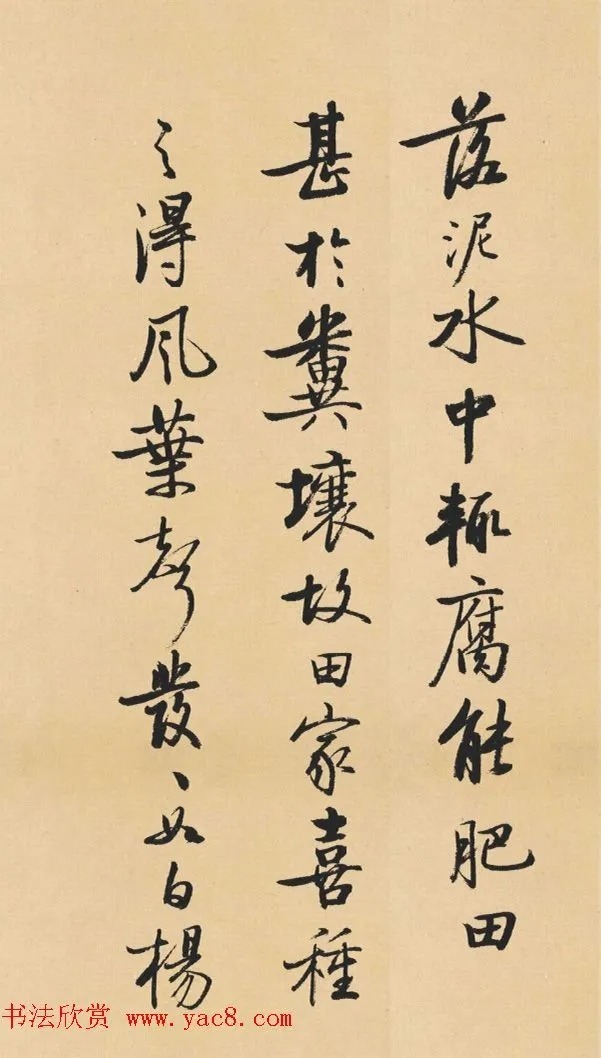 落泥水中輒腐能肥田
甚於糞壤故田家喜種
之得風葉聲發々如白楊
书法欣赏 www.yac8.com